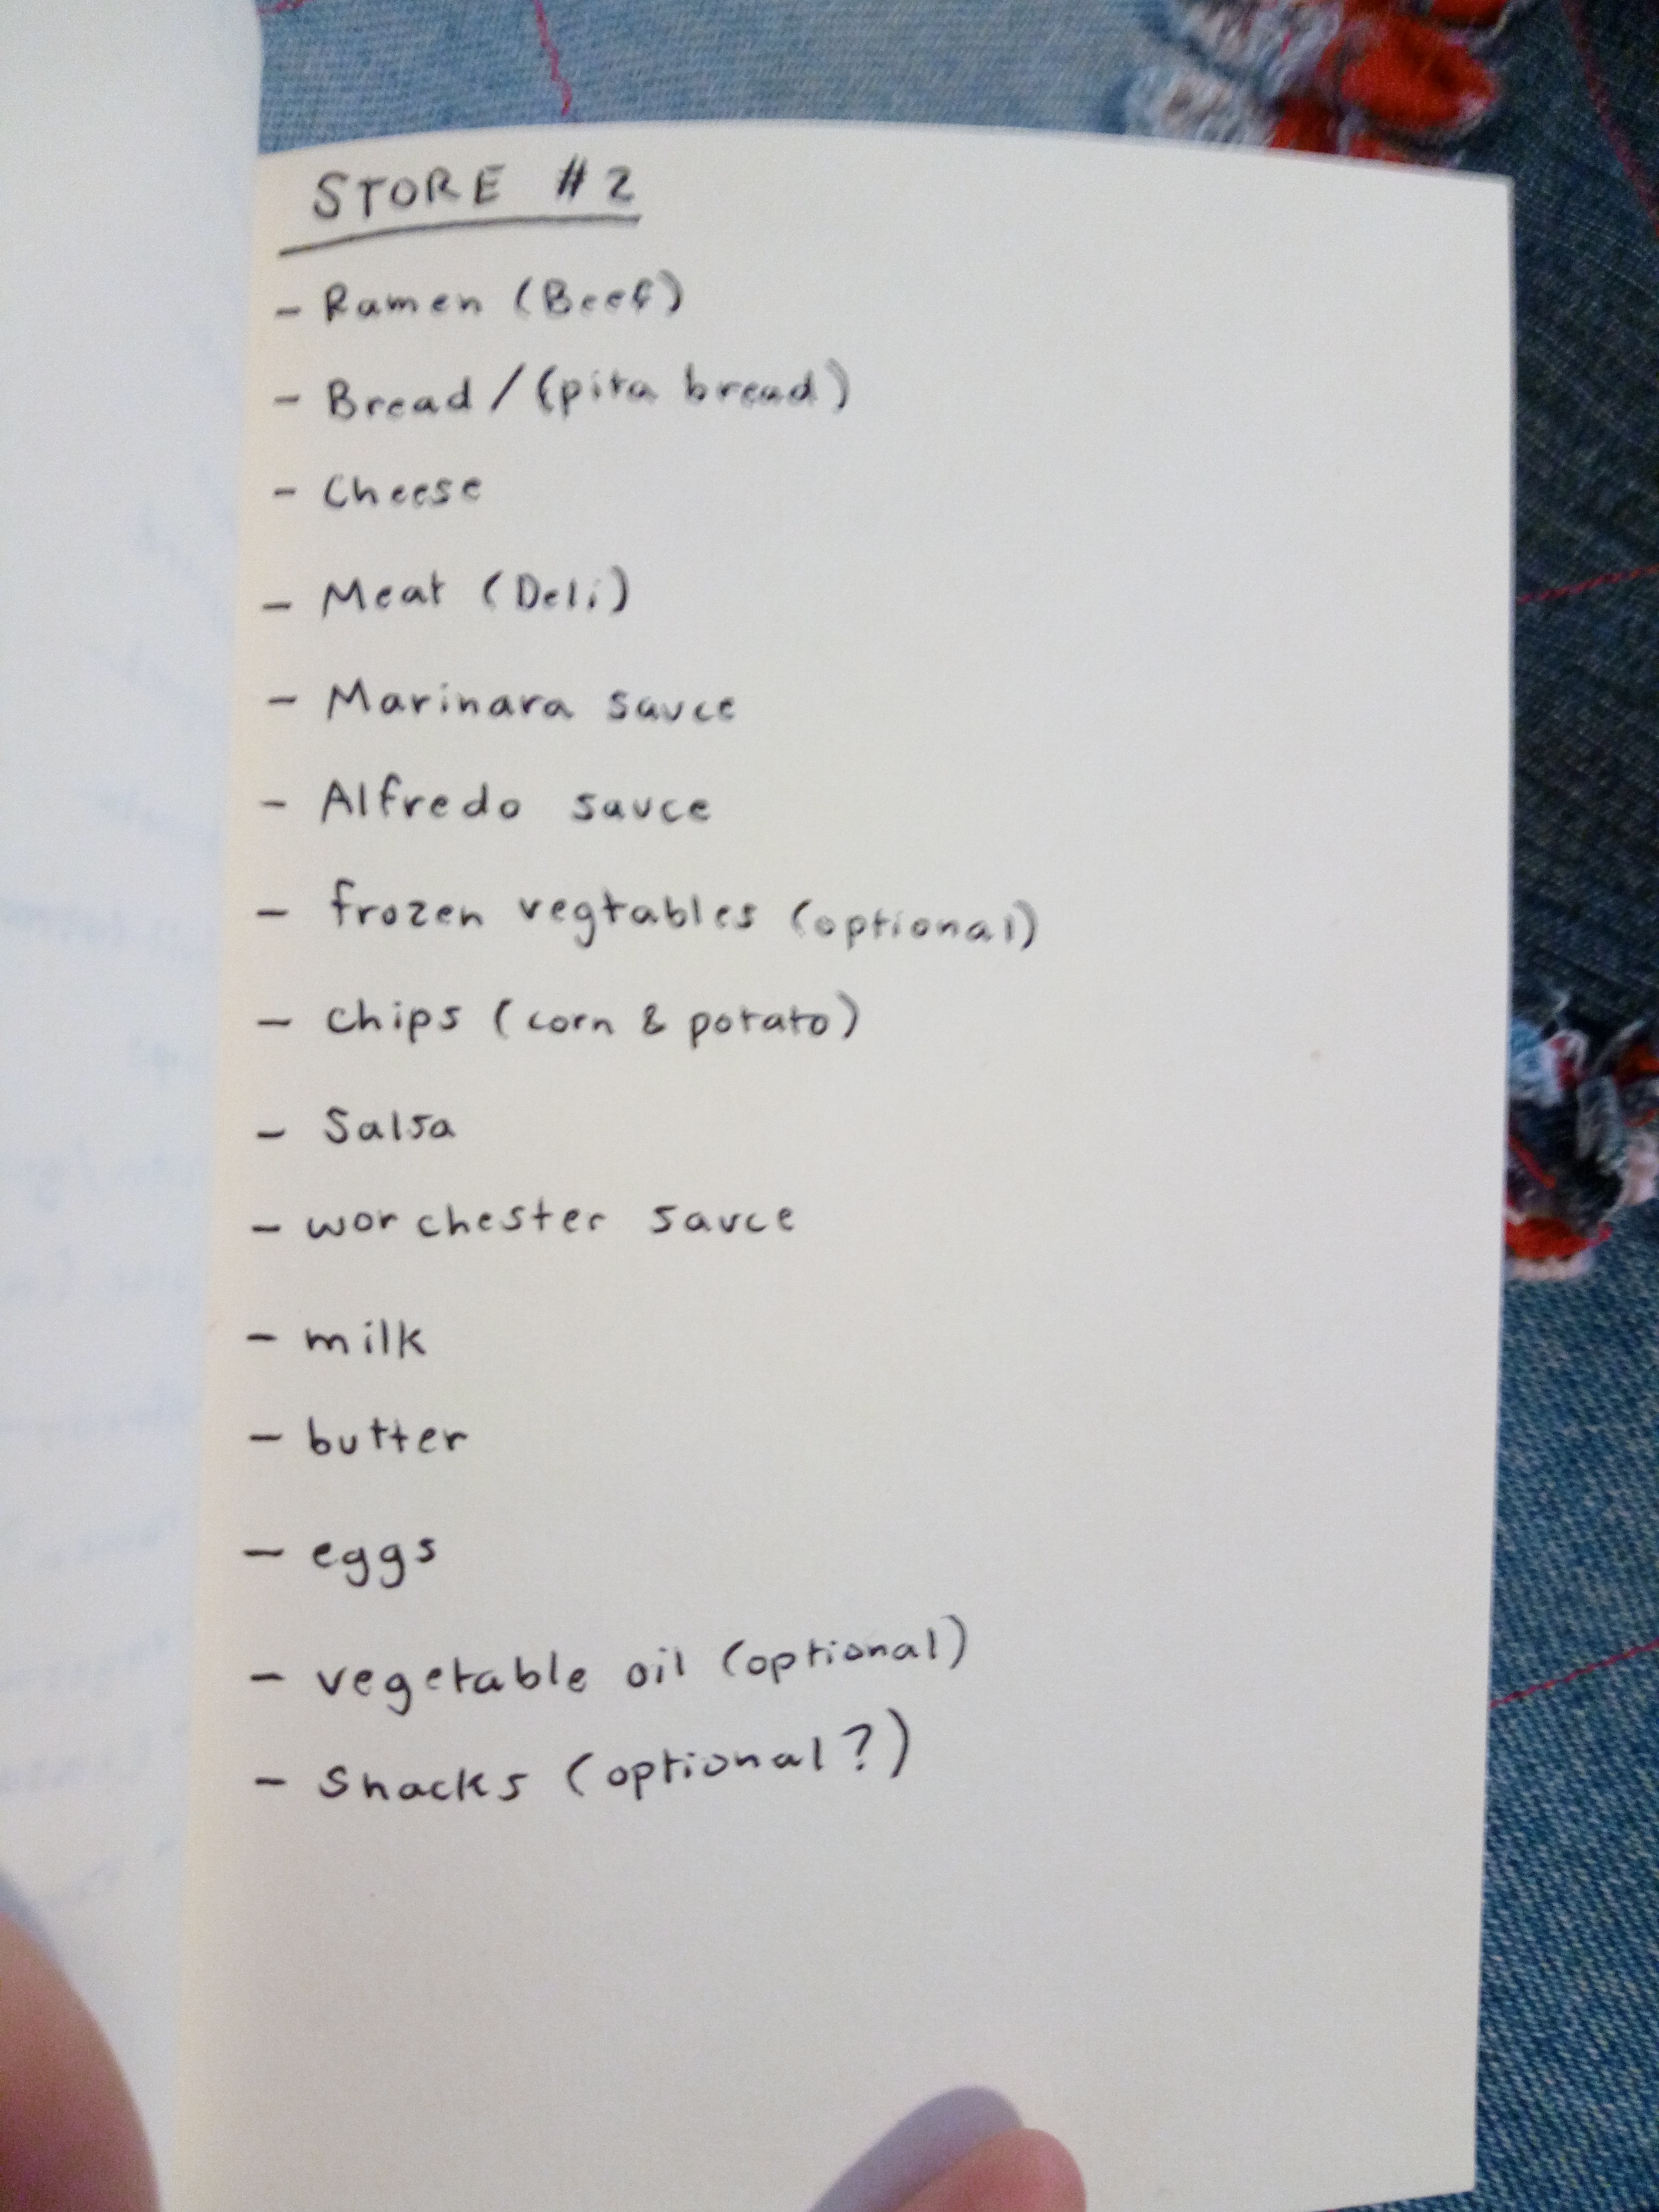 STORE #2
- Ramen (Beef)
- Bread / (pita bread)
- Cheese
- Meat (Deli)
- Marinara sauce
- Alfredo sauce
- frozen vegtables (optional)
- chips (corn & potato)
- Salsa
- worchester sauce
- milk
- butter
- eggs
- vegetable oil (optional)
- Snacks (optional?)